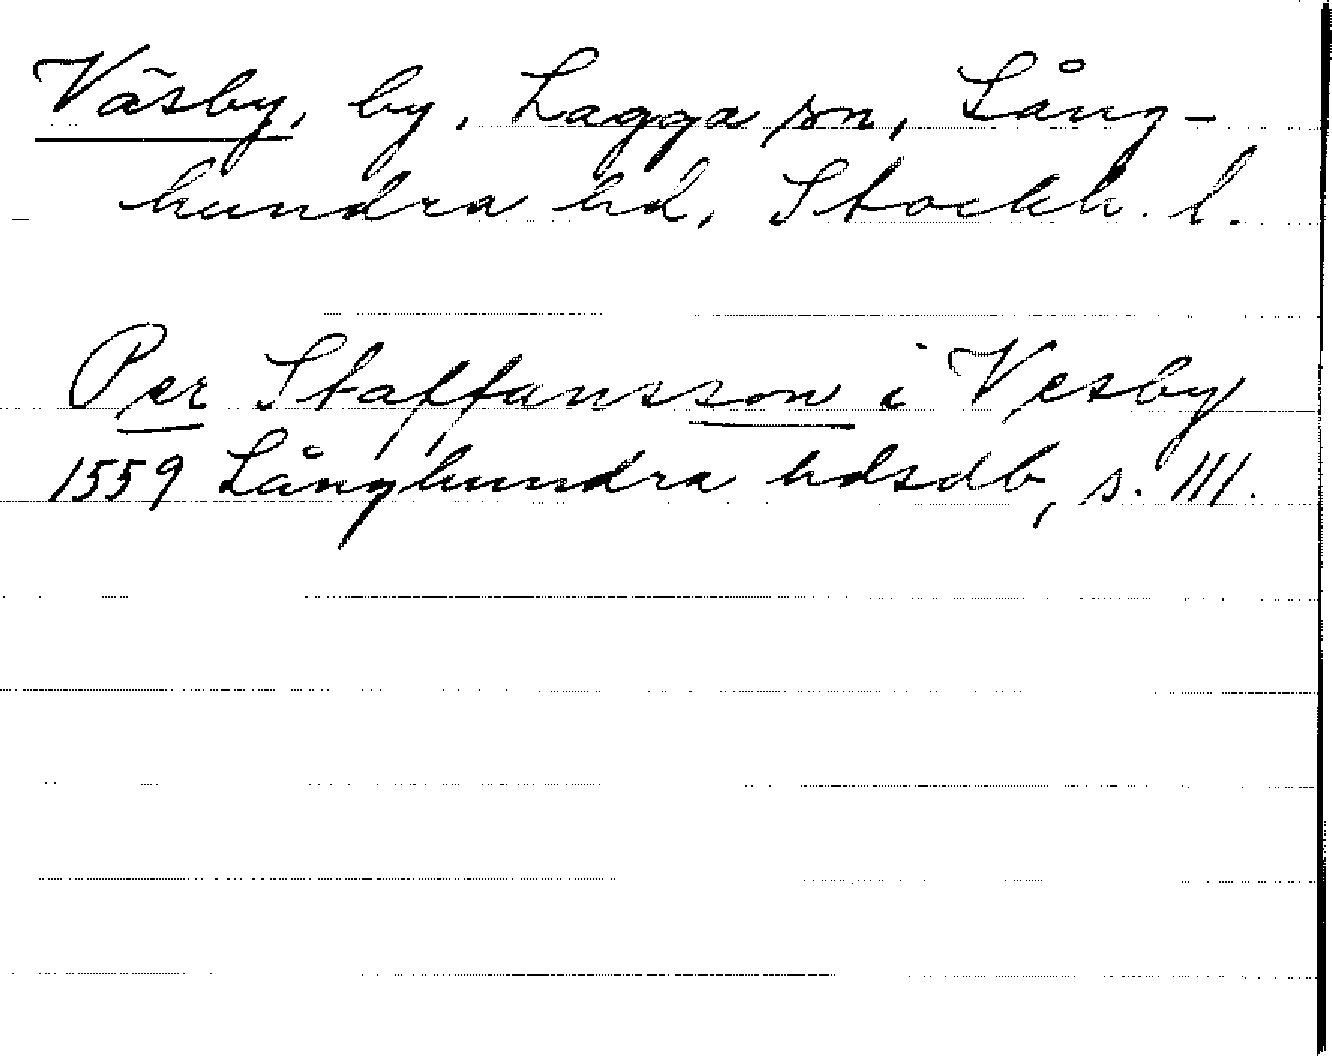 Väsby, by, Lagga sn, Lång-
hundra hd, Stockh. l.
Per Staffansson i Vesby
1559 Långhundra hdsdb, s. 111.